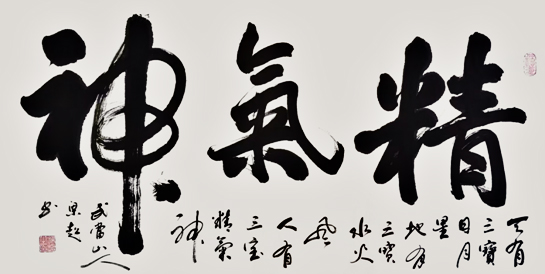 精氣神
天有
三寶
日月
星
地有
三寶
水火
風
人有
三宝
精氣
神
山人
书